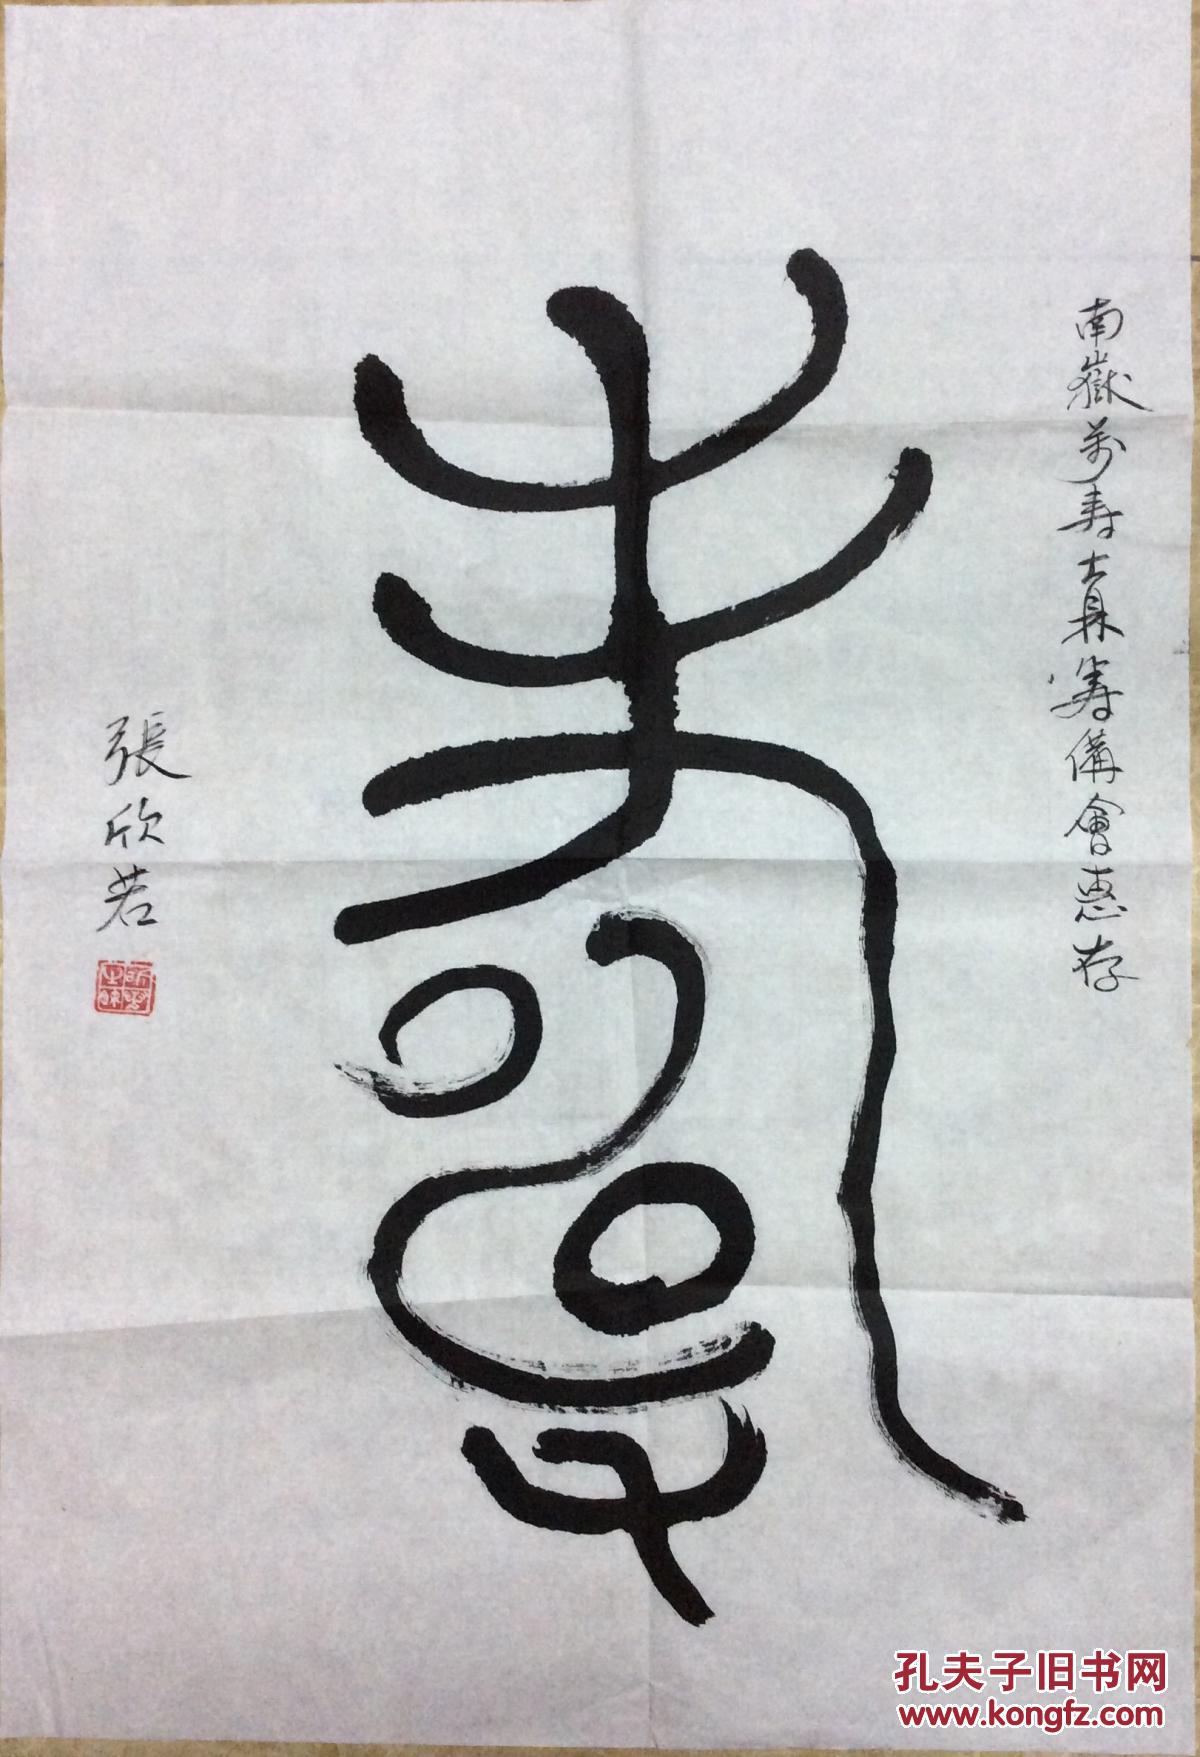 南嶽萬寿大鼎籌備會惠存
壽
張欣若
孔夫子旧书网
www.kongfz.com